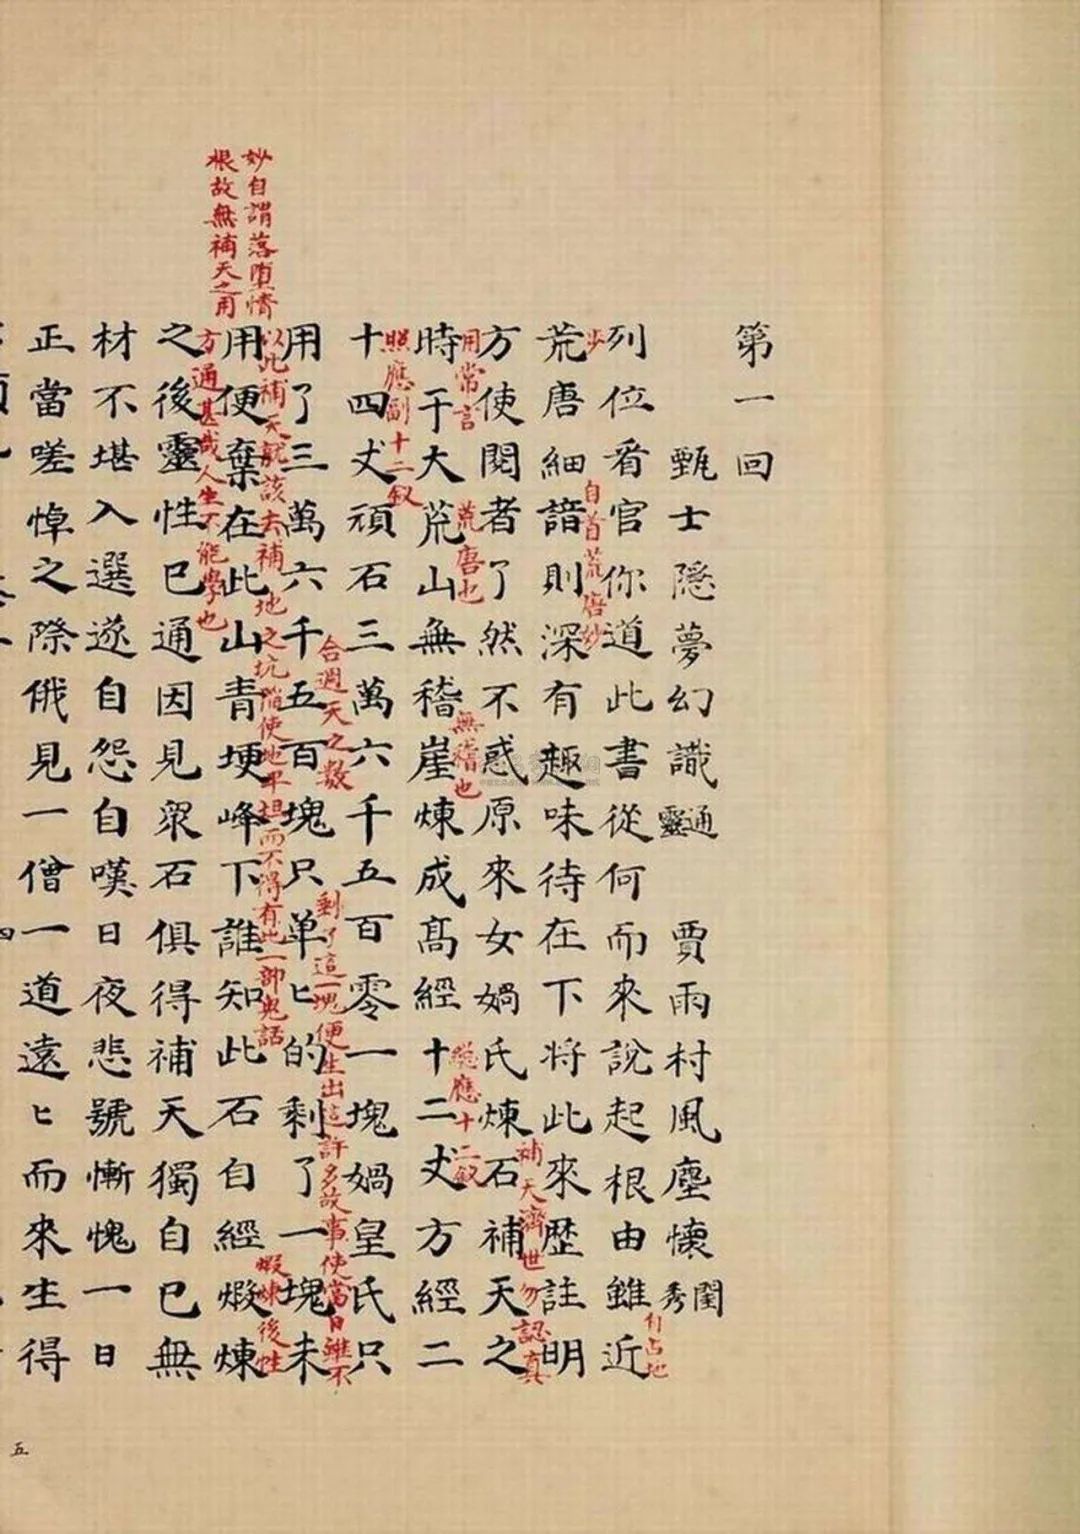 第一回
甄士隱夢幻識通靈 賈雨村風塵懷閨秀
列位看官你道此書從何而來說起根由雖近
自占地
步
荒唐細諳則深有趣味待在下將此來歷註明
自首荒唐妙
方使閱者了然不惑原來女媧氏煉石補天之
補天濟世勿認真
用常言
時于大荒山無稽崖煉成高經十二丈方經二
荒唐也
無稽也
總應十二釵
照應副十二釵
十四丈頑石三萬六千五百零一塊媧皇氏只
合週天之數
用了三萬六千五百塊只单匕的剩了一塊未
剩了這一塊便生出這許多故事使當日雖不
以此補天就該去補地之坑陷使地平坦而不得有此一部鬼話
妙自謂落堕情
根故無補天之用
用便棄在此山青埂峰下誰知此石自經煅煉
煅煉後性
方通甚哉人生不能學也
之後靈性已通因見衆石俱得補天獨自己無
材不堪入選遂自怨自嘆日夜悲號慚愧一日
正當嗟悼之際俄見一僧一道遠匕而來生得
四
五